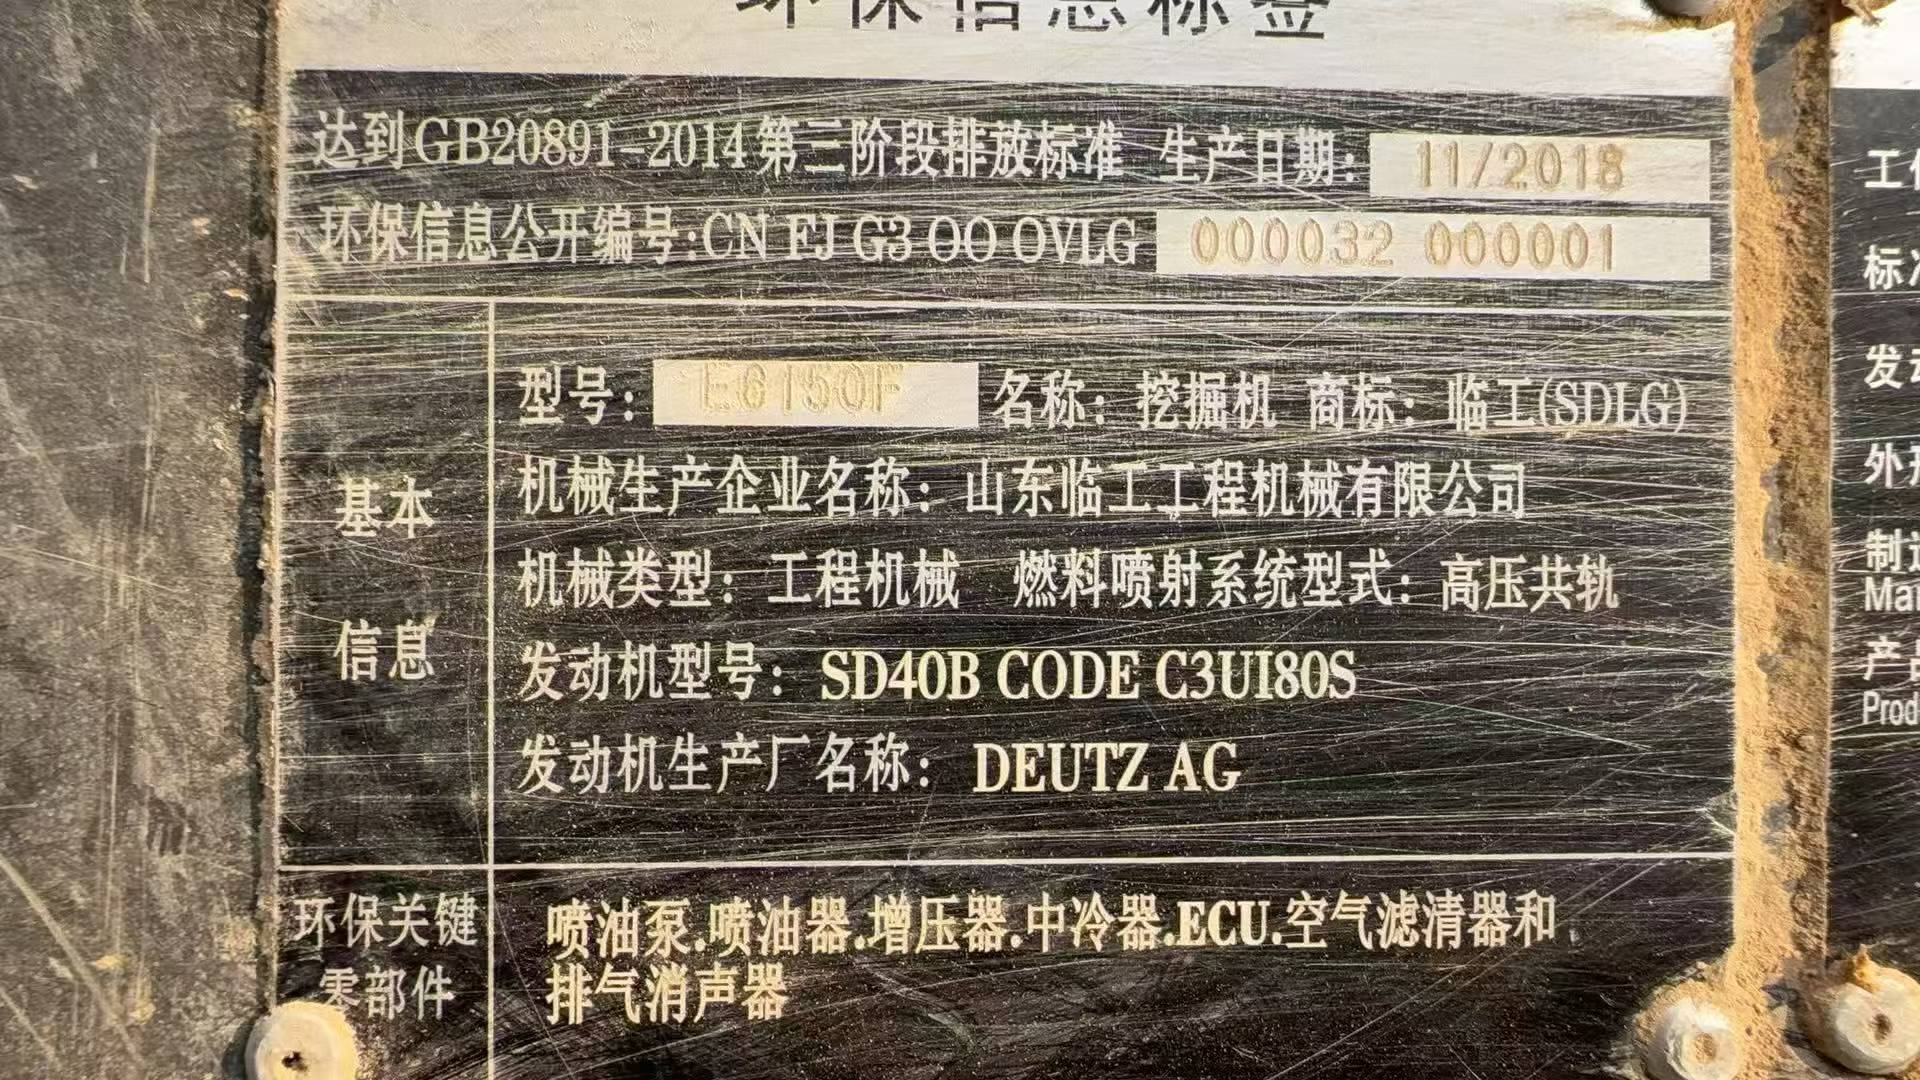 环保信息标签
达到GB20891-2014第三阶段排放标准 生产日期: 11/2018
环保信息公开编号:CN FJ G3 OO OVLG 000032 000001
型号: E6150F 名称: 挖掘机 商标: 临工(SDLG)
机械生产企业名称: 山东临工工程机械有限公司
机械类型: 工程机械 燃料喷射系统型式: 高压共轨
发动机型号: SD40B CODE C3UI80S
发动机生产厂名称: DEUTZ AG
基本
信息
环保关键
零部件
喷油泵.喷油器.增压器.中冷器.ECU.空气滤清器和
排气消声器
工
标
发
外
制
产